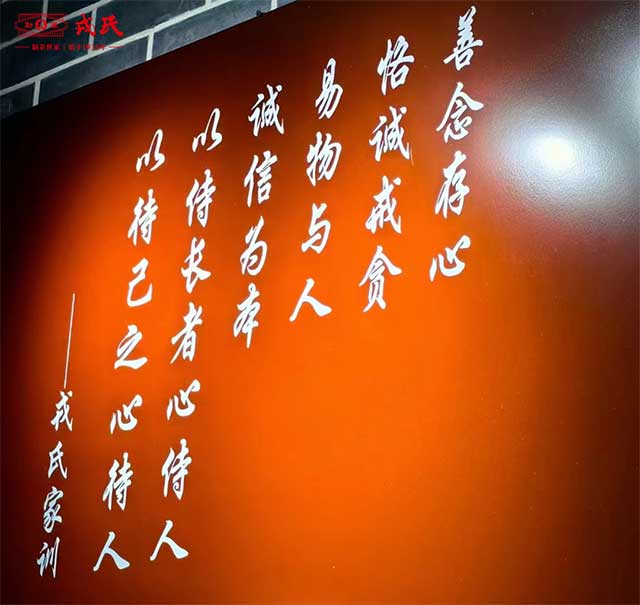 戎氏
善念存心
恪诚戒贪
易物与人
诚信为本
以侍长者心侍人
以待己之心待人
——戎氏家训